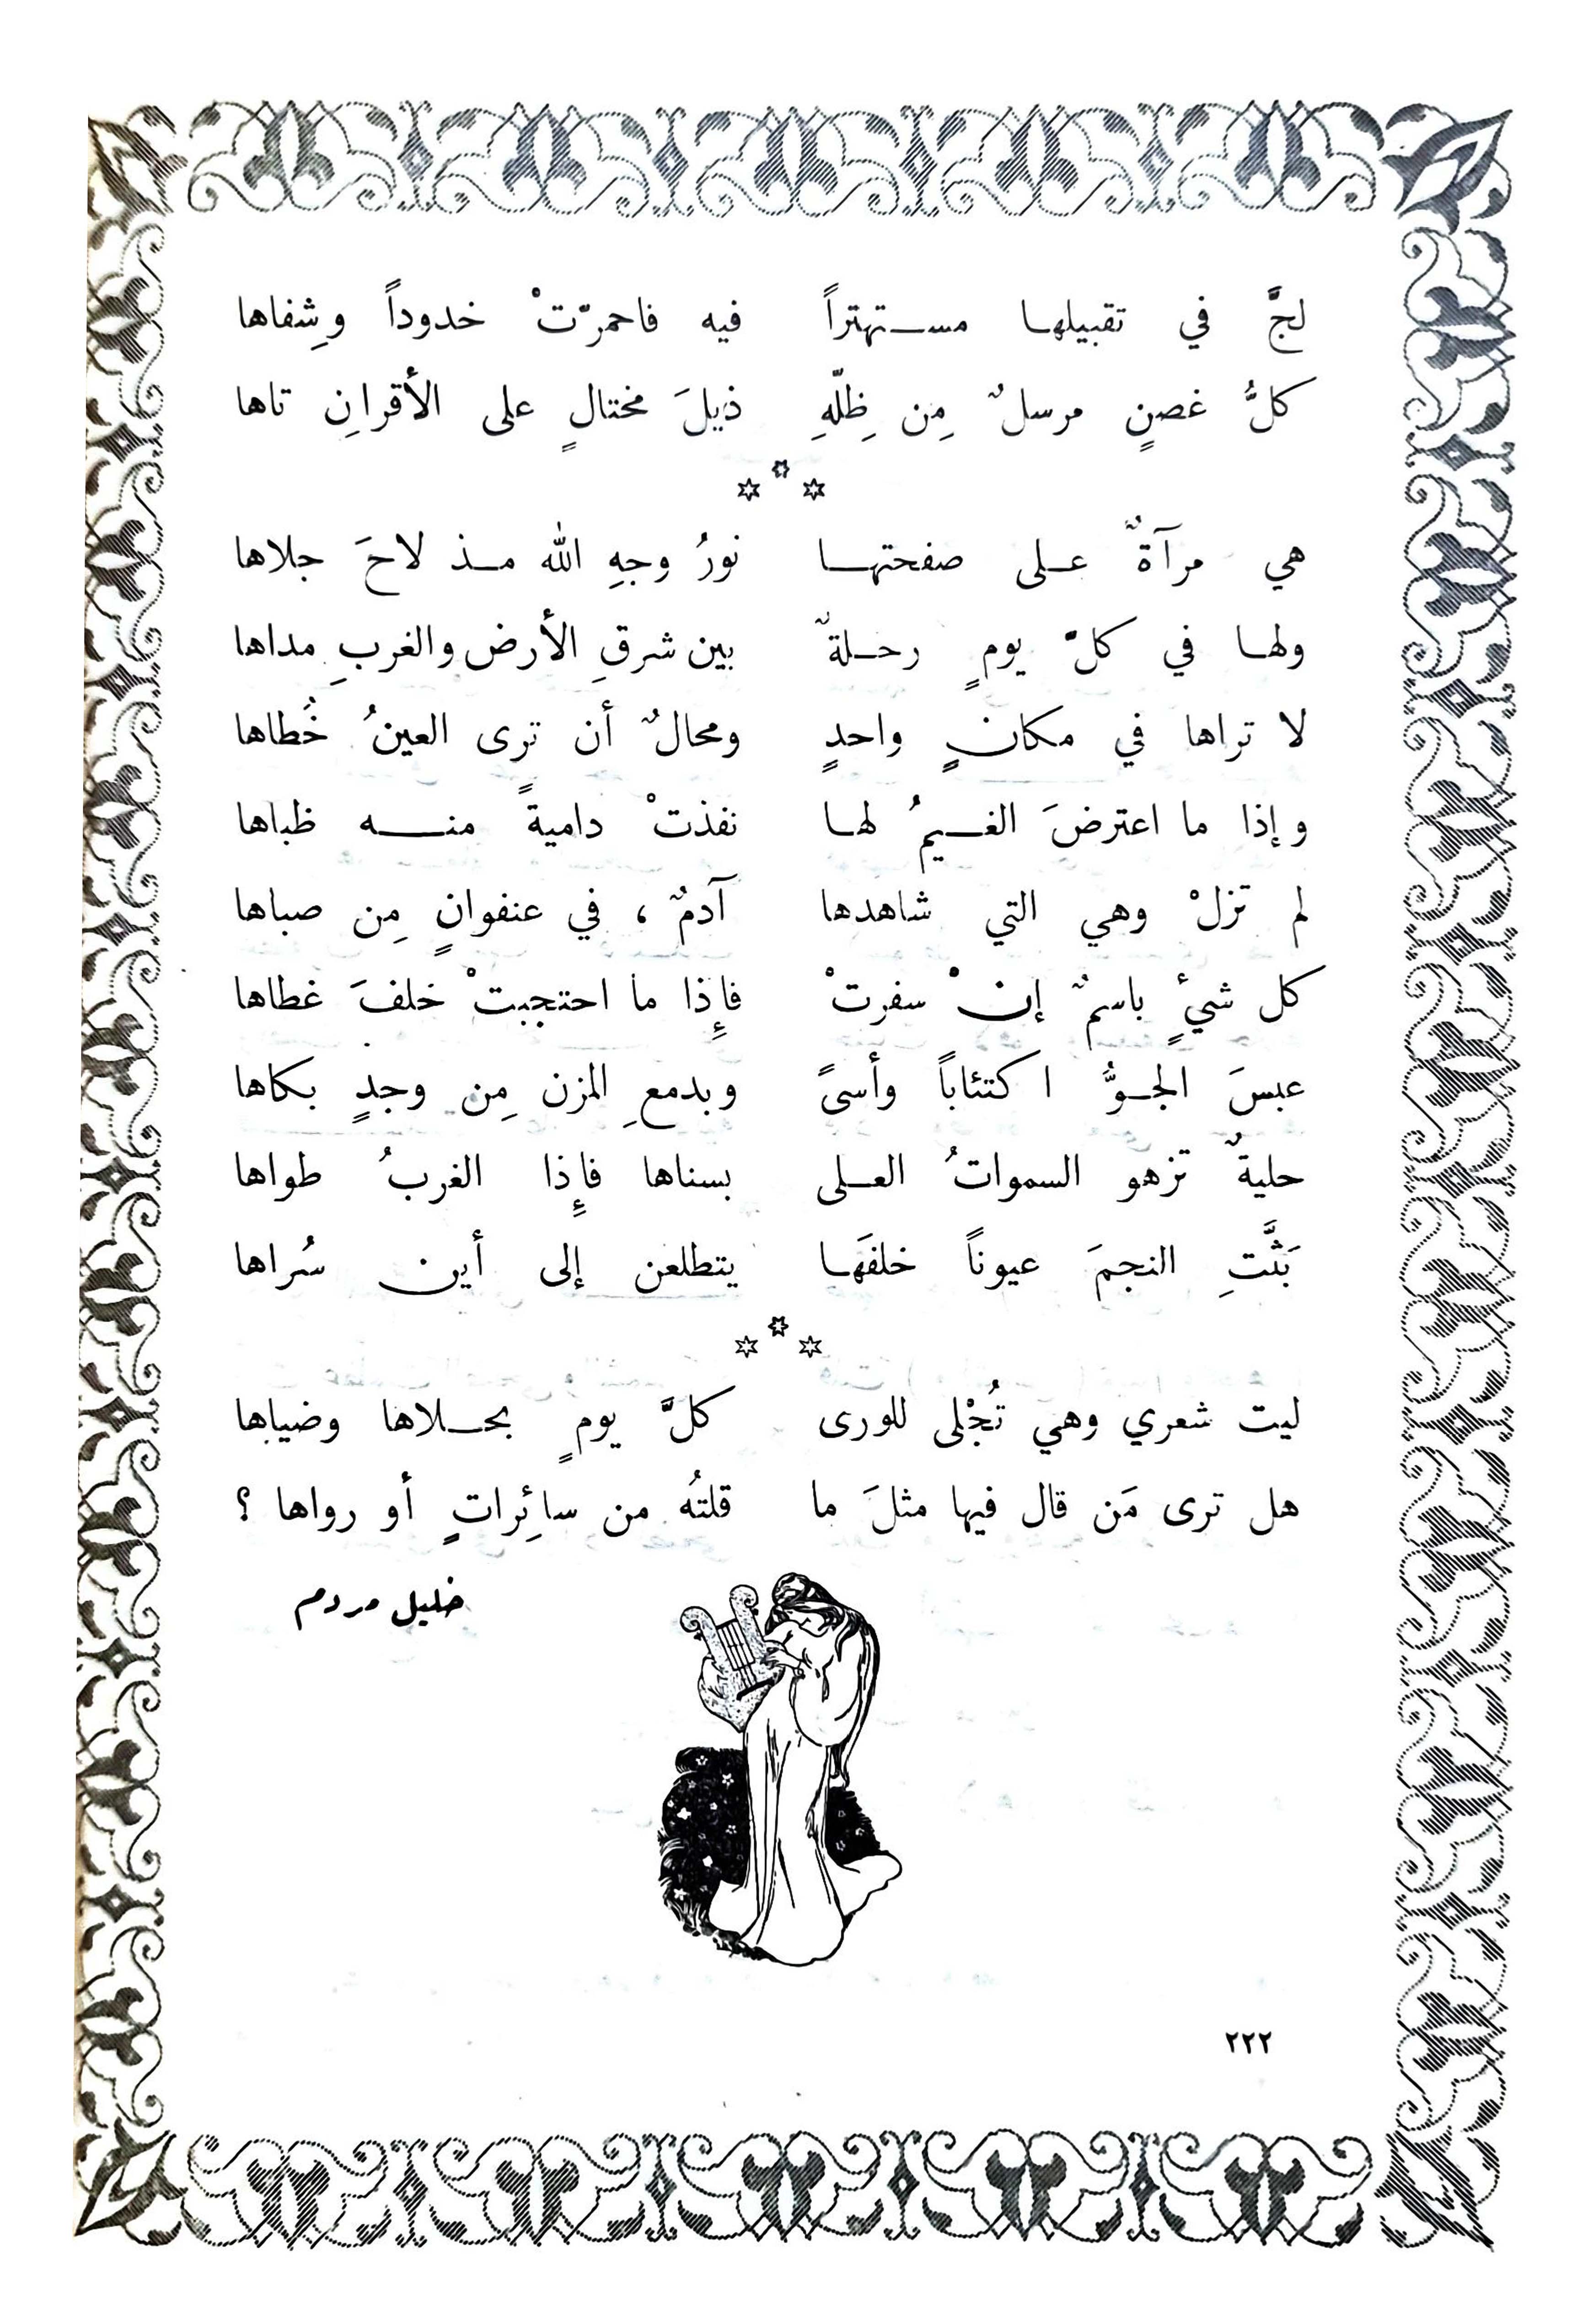 لجَّ في تقبيلها مستهتراً فيه فاحمرّتْ خدوداً وشِفاها
كلُّ غصنٍ مرسلٌ مِن ظِلّهِ ذيلَ مختالٍ على الأقرانِ تاها
هي مرآةٌ على صفحتها نورُ وجهِ الله مذ لاحَ جلاها
ولها في كلّ يومٍ رحلةٌ بين شرقِ الأرض والغربِ مداها
لا تراها في مكانٍ واحدٍ ومحالٌ أن ترى العينُ خُطاها
وإذا ما اعترضَ الغيمُ لها نفذتْ داميةً منه ظباها
لم تزلْ وهي التي شاهدها آدمٌ ، في عنفوانٍ مِن صباها
كل شيءٍ باسمٌ إنْ سفرتْ فإِذا ما احتجبتْ خلفَ غطاها
عبسَ الجوُّ اكتئاباً وأسىً وبدمعِ المزن مِن وجدٍ بكاها
حليةٌ تزهو السمواتُ العلى بسناها فإِذا الغربُ طواها
بَثَّتِ النجمَ عيوناً خلفَها يتطلعن إلى أين سُراها
ليت شعري وهي تُجْلى للورى كلَّ يومٍ بحلاها وضياها
هل ترى مَن قال فيها مثلَ ما قلتُه من سائِراتٍ أو رواها ؟
خليل مردم
٢٢٢